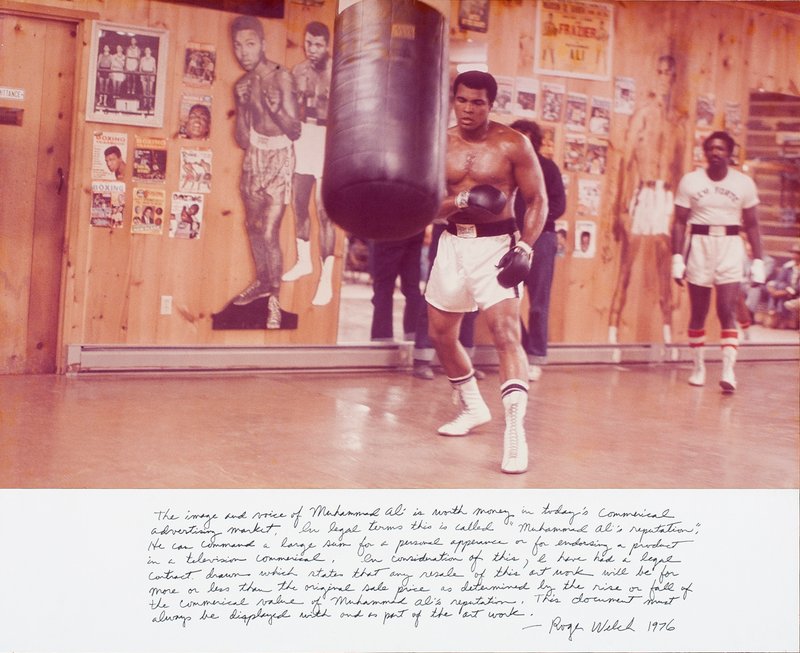 MITTANCE
FRAZIER
ALI
BOXING
BOXING
BOXING
The image and voice of Muhammad Ali is worth money in today's commerical
advertising market. In legal terms this is called "Muhammad Ali's reputation".
He can command a large sum for a personal apperance or for endorsing a product
in a television commerical. In consideration of this, I have had a legal
contract drawn which states that any resale of this art work will be for
more or less than the original sale price as determined by the rise or fall of
the commerical value of Muhammad Ali's reputation. This document must
always be displayed with and as part of the art work.
— Roger Welch 1976